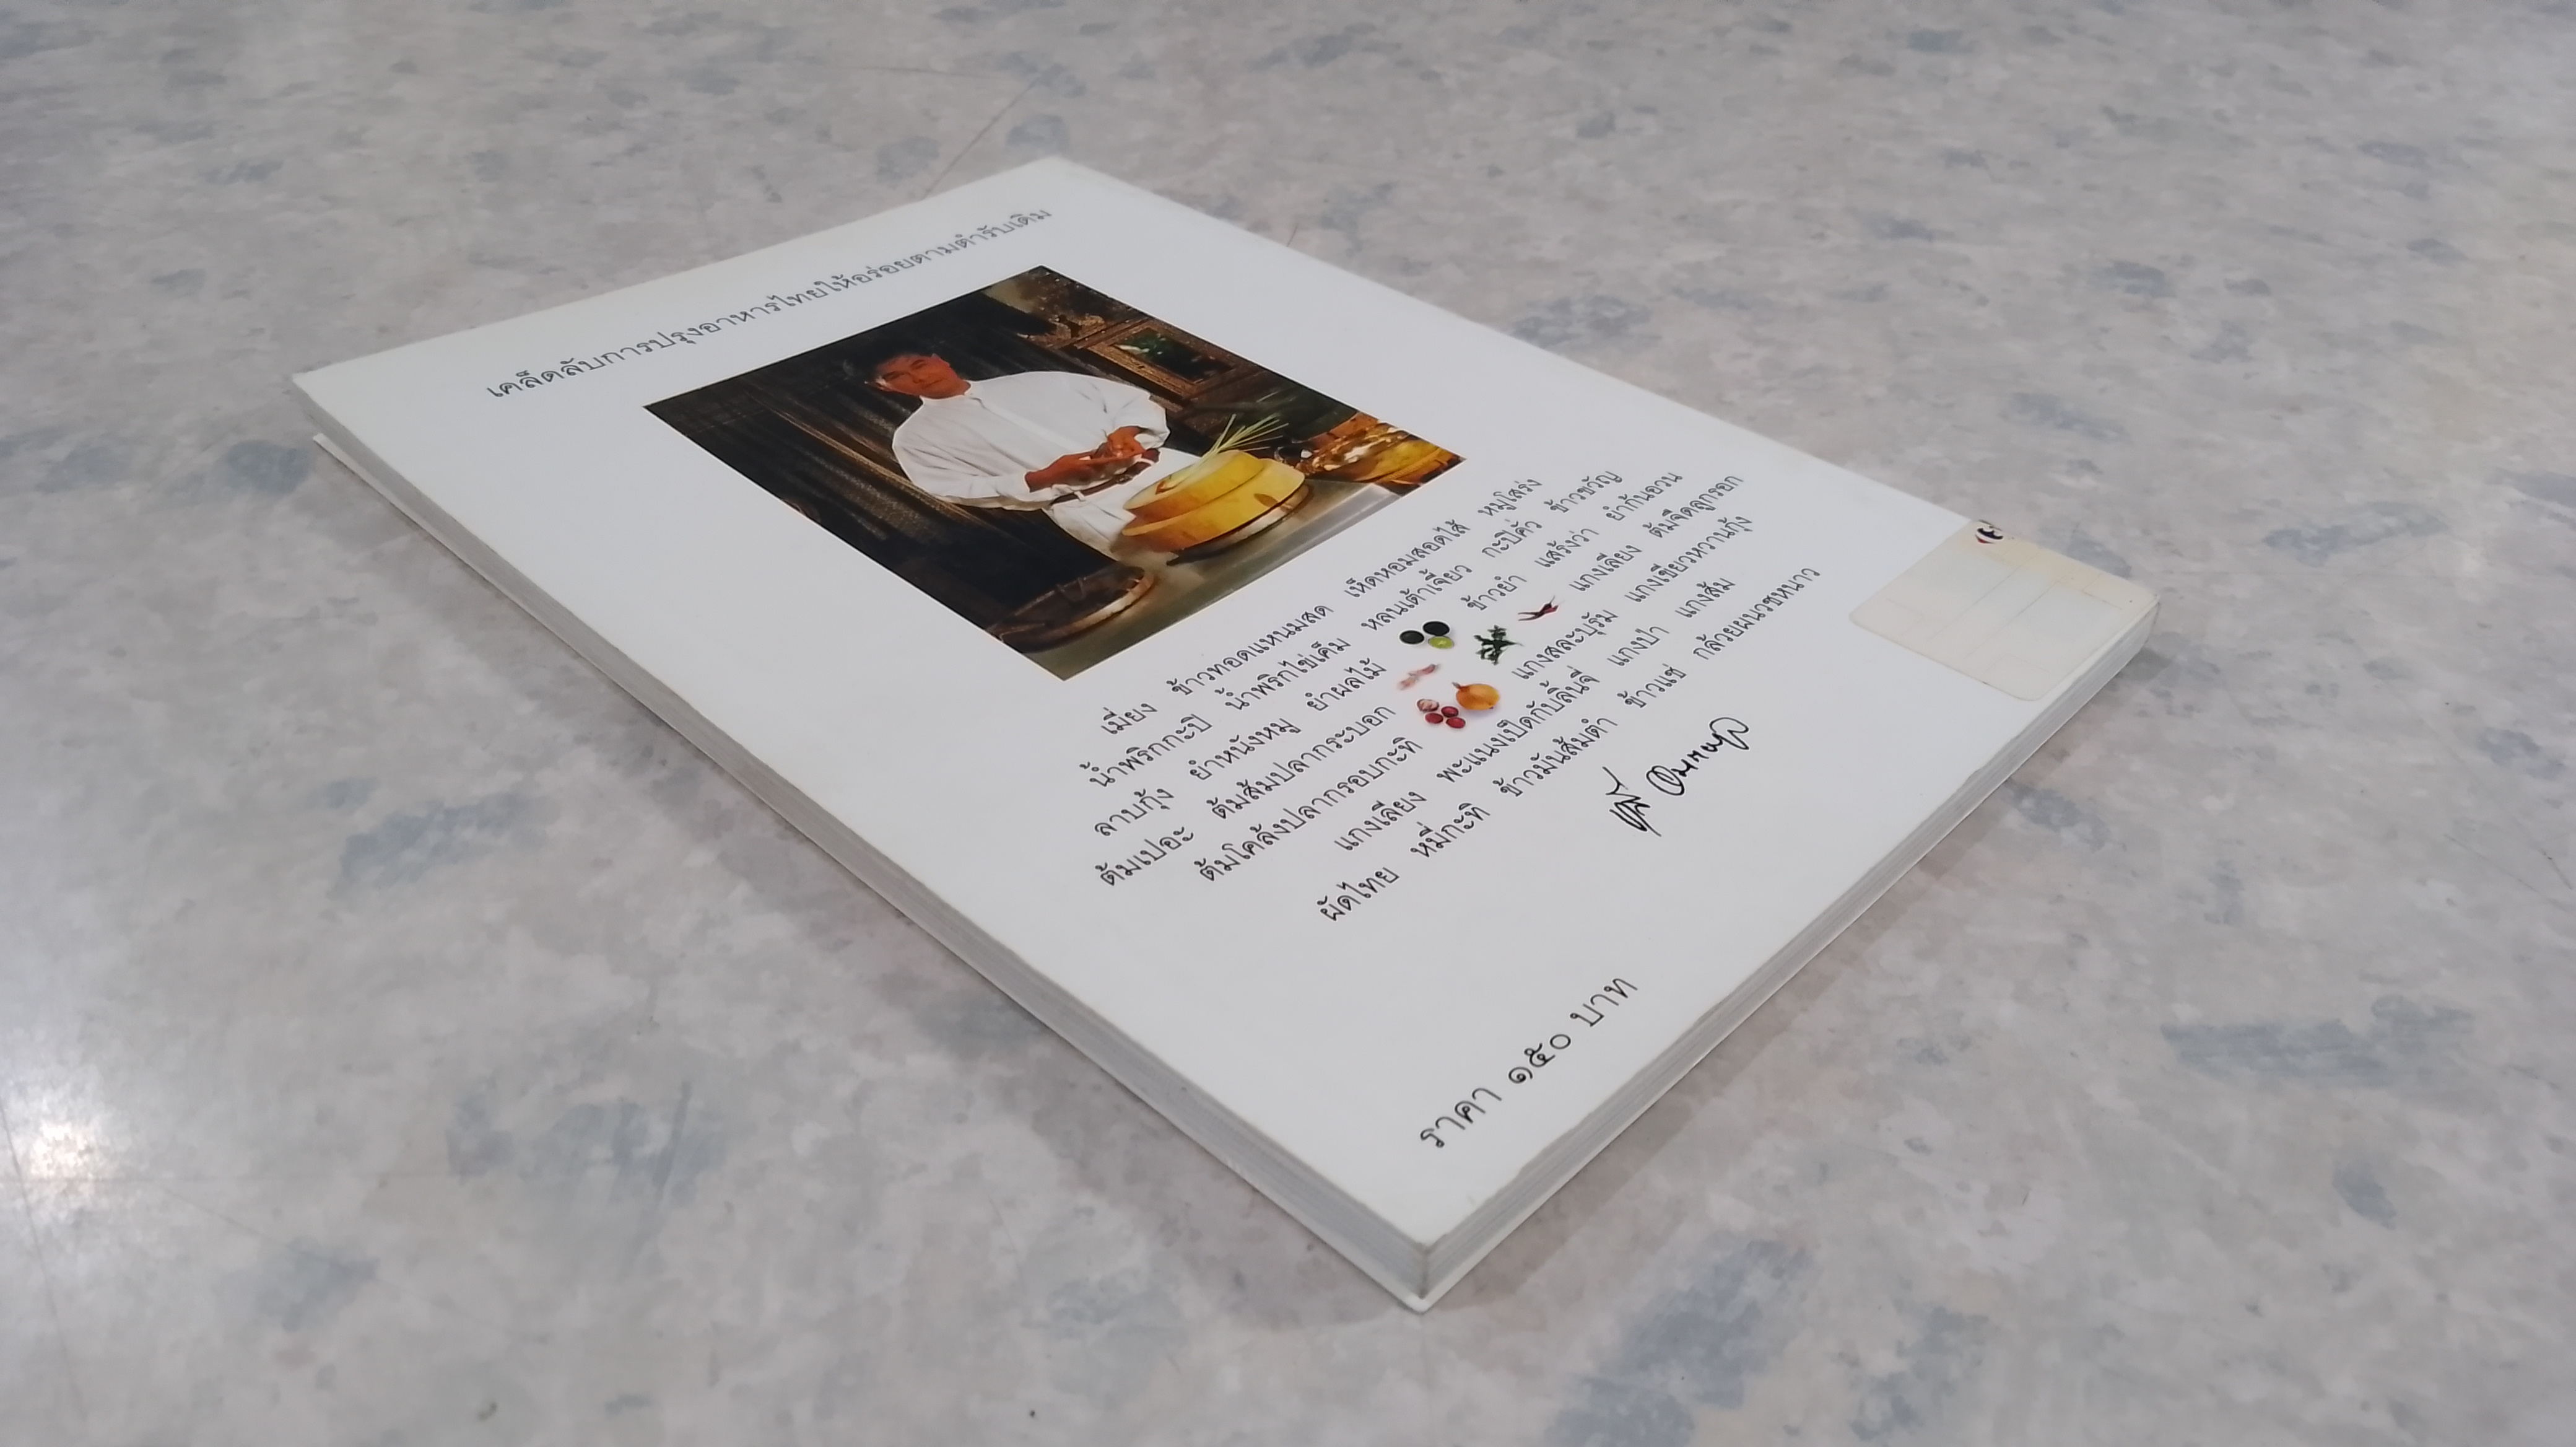 เคล็ดลับการปรุงอาหารไทยให้อร่อยตามตำรับเดิม
เมี่ยง ข้าวทอดแหนมสด เห็ดหอมสอดไส้ หมูโสร่ง
น้ำพริกกะปิ น้ำพริกไข่เค็ม หลนเต้าเจี้ยว กะปิคั่ว ข้าวขวัญ
ลาบกุ้ง ยำหนังหมู ยำผลไม้ ข้าวยำ แสร้งว่า ยำก้นอวน
ต้มเปอะ ต้มส้มปลากระบอก แกงเลียง ต้มจืดลูกรอก
ต้มโคล้งปลากรอบกะทิ แกงสละบุรุ่ม แกงเขียวหวานกุ้ง
แกงเลียง พะแนงเป็ดกับลิ้นจี่ แกงป่า แกงส้ม
ผัดไทย หมี่กะทิ ข้าวมันส้มตำ ข้าวแช่ กล้วยผนวชหนาว
ราคา ๑๕๐ บาท